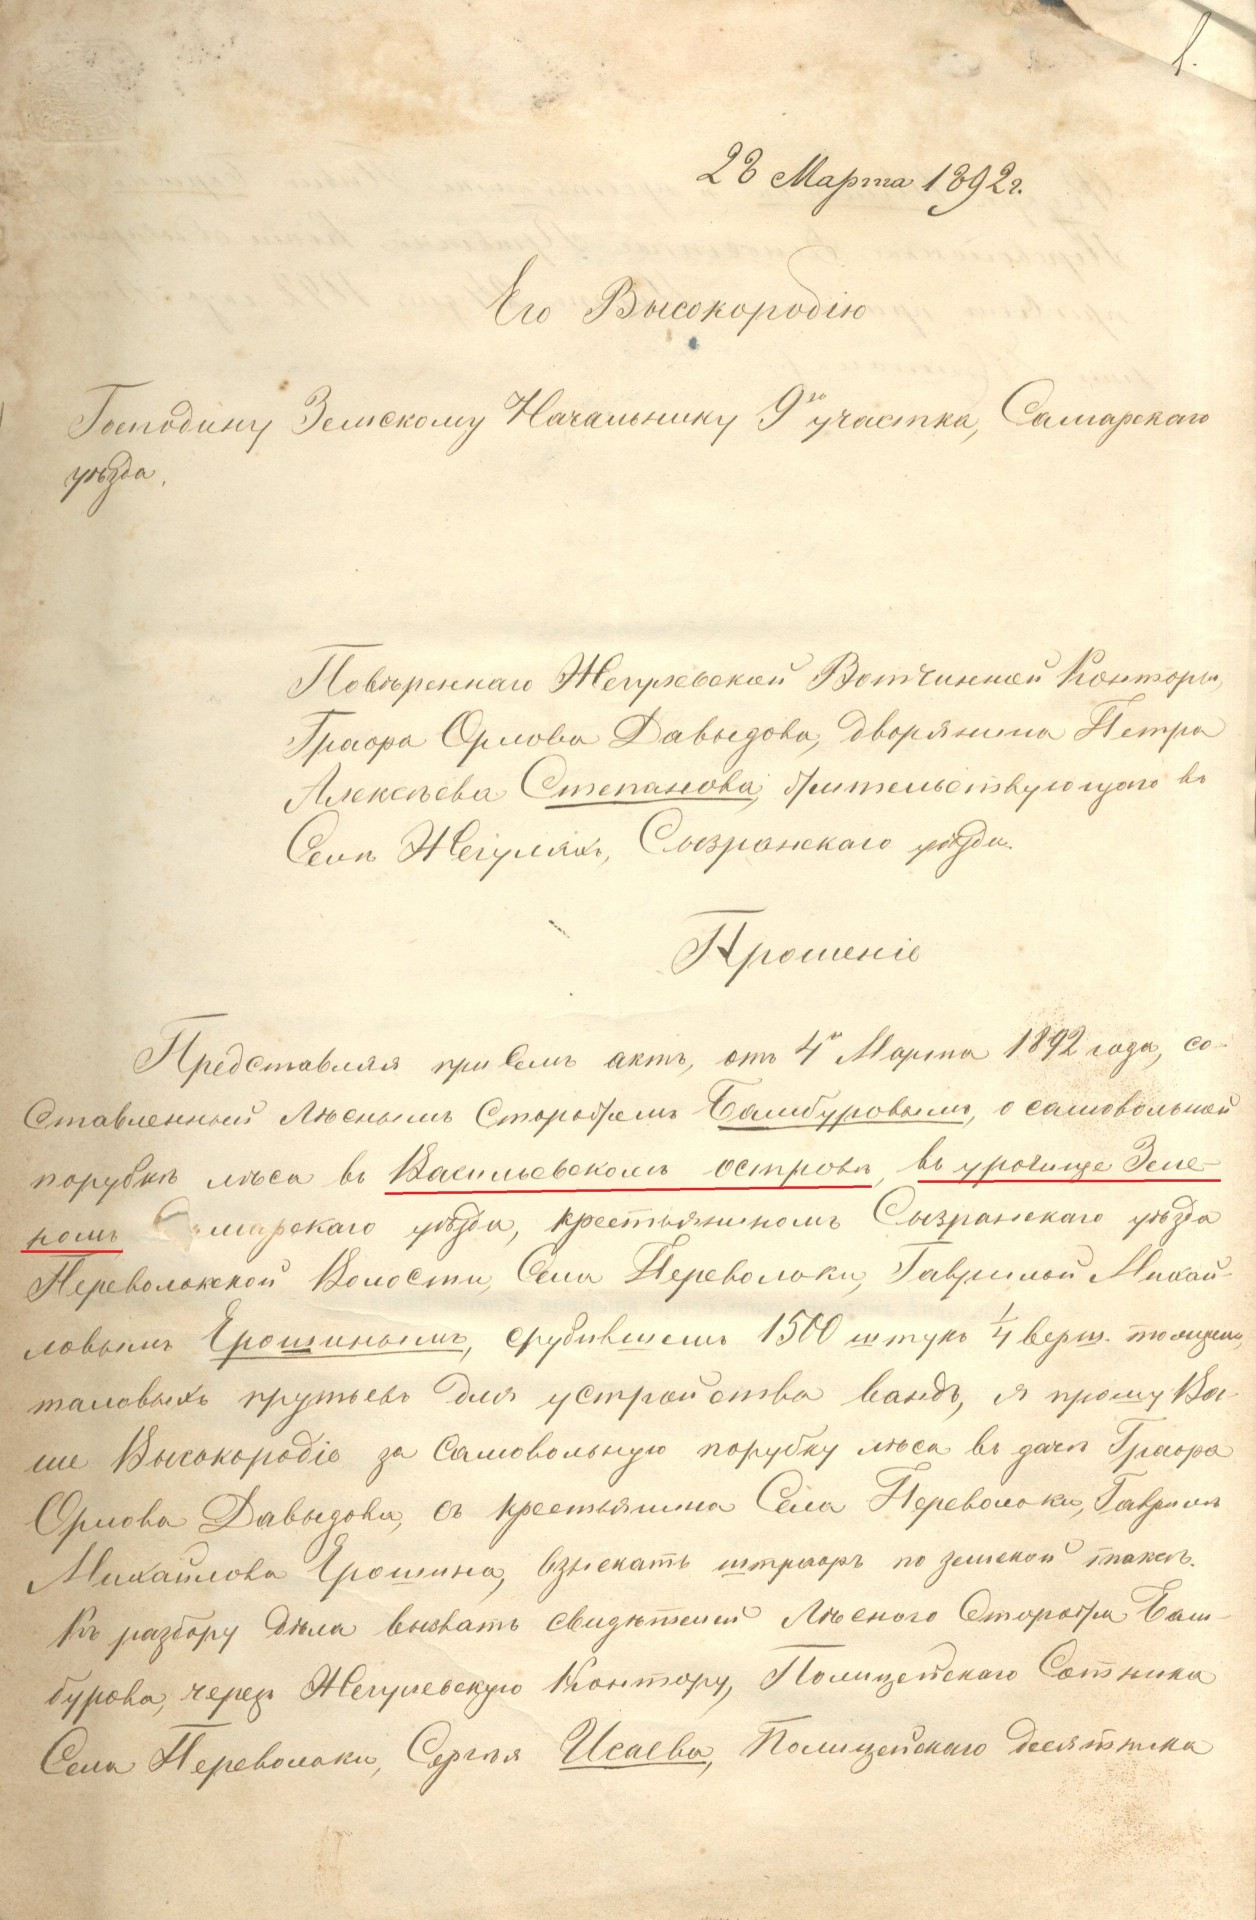 1.
28 Марта 1892 г.
Его Высокородію
Господину Земскому Начальнику 9го участка, Самарскаго
уѣзда.
Повѣреннаго Жегулевской Вотчинной Конторы,
Графа Орлова Давыдова, дворянина Петра
Алексѣева Степанова, жительствующаго въ
Селѣ Жегуляхъ, Сызранскаго уѣзда.
Прошеніе
Представляя при семъ актъ, отъ 4го Марта 1892 года, со-
ставленный Лѣснымъ Сторожемъ Бамбуровымъ, о самовольной
порубкѣ лѣса въ Васильевскомъ островѣ, въ урочище Зеле-
номъ Самарскаго уѣзда, крестьяниномъ Сызранскаго уѣзда
Переволокской Волости, Села Переволоки, Гаврилой Михай-
ловымъ Ерошинымъ, срубившемъ 1500 штукъ 1/4 верш. толщины,
таловыхъ прутьевъ для устройства вандъ, я прошу Ва-
ше Высокородіе за самовольную порубку лѣса въ дачѣ Графа
Орлова Давыдова, съ крестьянина Села Переволоки, Гаврилы
Михайлова Ерошина, взыскать штрафъ по земской таксѣ.
Къ разбору дѣла вызвать свидѣтелей Лѣсного Сторожа Бам-
бурова, черезъ Жегулевскую Контору, Полицейскаго Сотника
Села Переволоки, Сергѣя Исаева, Полицейскаго десятника